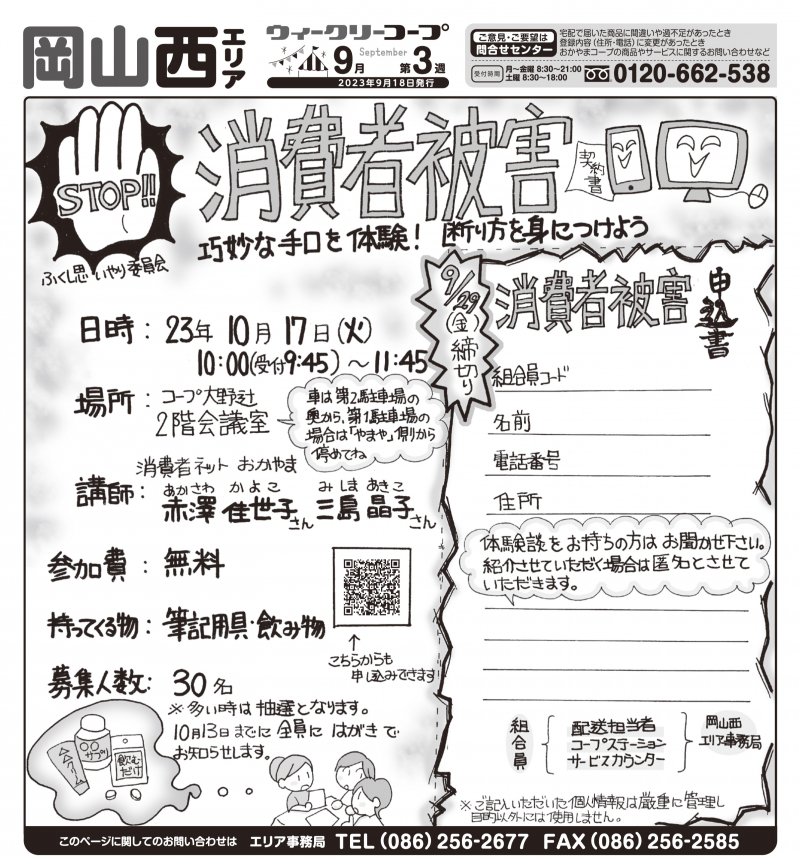 岡山西エリア
ウィークリーコープ
September
9月 第3週
2023年9月18日発行
ご意見・ご要望は
問合せセンター
宅配で届いた商品に間違いや過不足があったとき
登録内容(住所・電話)に変更があったとき
おかやまコープの商品やサービスに関するお問い合わせなど
受付時間
月〜金曜 8:30〜21:00
土曜 8:30〜18:00
0120-662-538
STOP!!
ふくし思いやり委員会
消費者被害
契約書
巧妙な手口を体験! 断り方を身につけよう
日時: 23年 10月 17日(火)
10:00(受付9:45)〜11:45
場所: コープ大野辻
2階会議室
車は第2駐車場の
奥から、第1駐車場の
場合は「やまや」側から
停めてね
消費者ネットおかやま
講師: 赤澤 佳世子さん 三島 晶子さん
あかざわ かよこ みしま あきこ
参加費: 無料
持ってくる物: 筆記用具・飲み物
募集人数: 30名
※多い時は抽選となります。
10月13日までに全員にはがきで
お知らせします。
↑
こちらからも
申し込みできます
△△クリーム
○○サプリ
飲むだけ
9/29(金)締切り
消費者被害 申込書
組合員コード
名前
電話番号
住所
体験談をお持ちの方はお聞かせ下さい。
紹介させていただく場合は匿名とさせて
いただきます。
組合員
配送担当者
コープステーション
サービスカウンター
岡山西
エリア事務局
※ご記入いただいた個人情報は厳重に管理し
目的以外には使用しません。
このページに関してのお問い合わせは エリア事務局 TEL(086)256-2677 FAX(086)256-2585